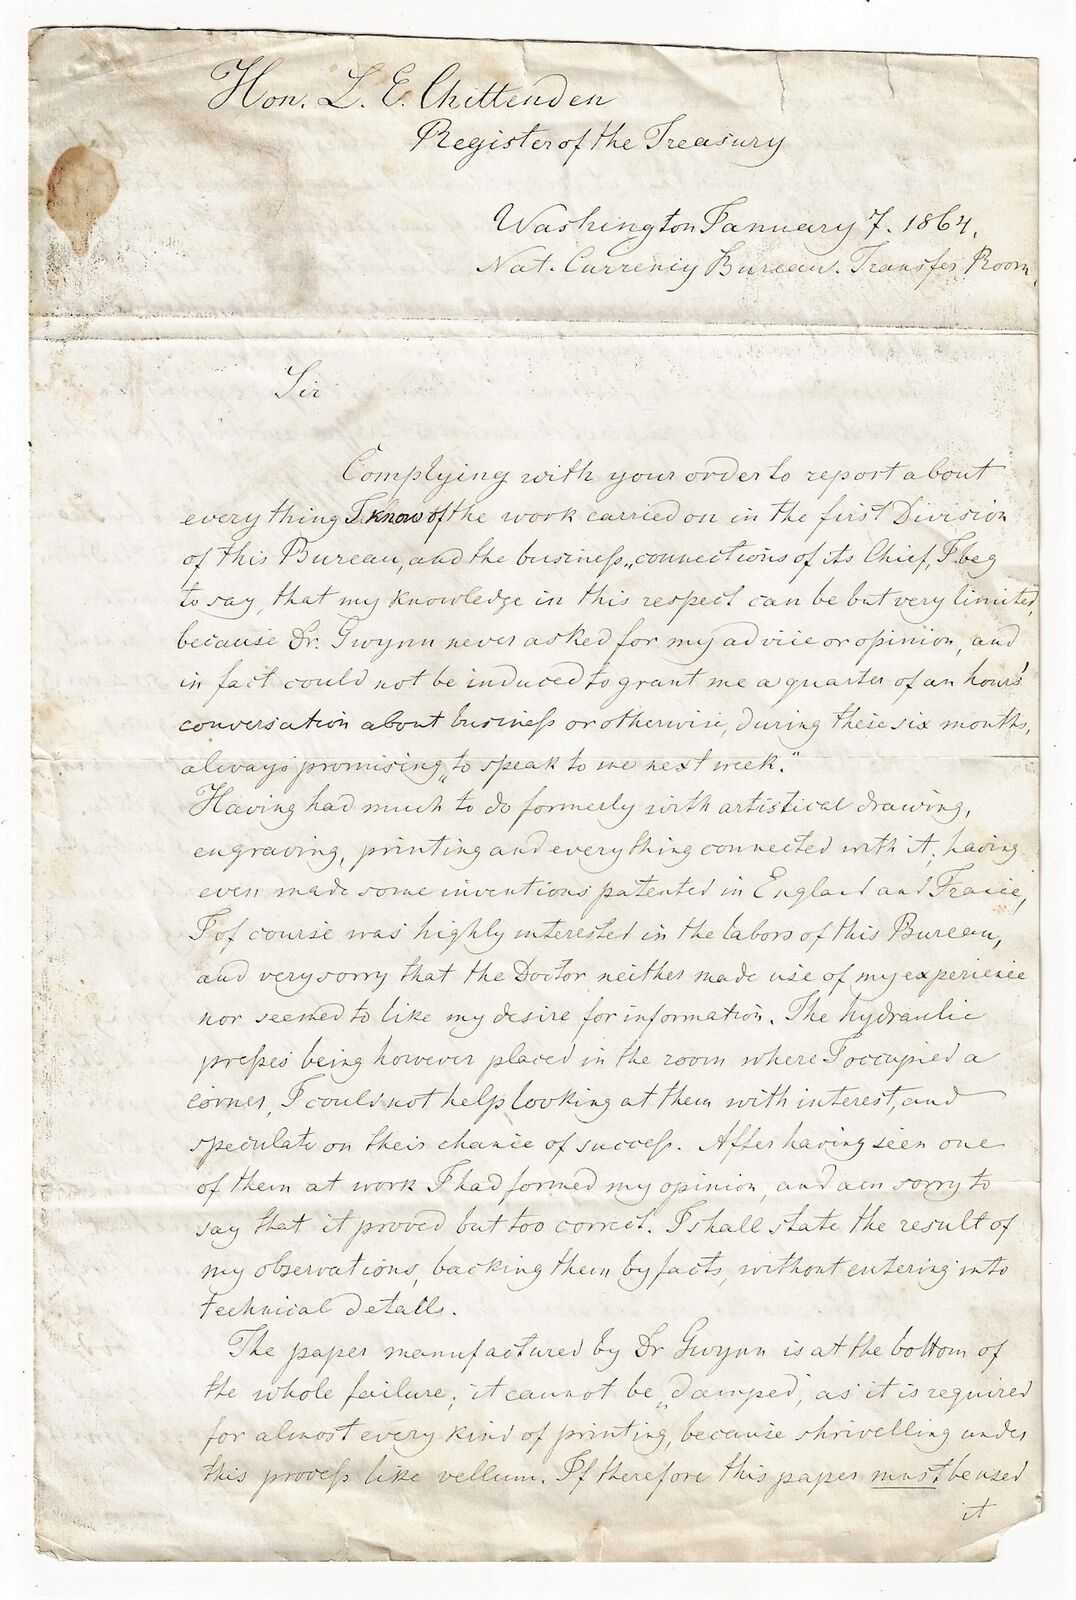 Hon. L. E. Chittenden
Register of the Treasury
Washington January 7. 1864.
Nat. Currency Bureau. Transfer Room.
Sir
Complying with your order to report about
every thing I know of the work carried on in the first Division
of this Bureau, and the business „connections of its Chief, I beg
to say, that my knowledge in this respect can be but very limited,
because Dr. Gwynn never asked for my advice or opinion, and
in fact could not be induced to grant me a quarter of an hours'
conversation about business or otherwise, during these six months,
always promising „to speak to me next week."
Having had much to do formerly with artistical drawing,
engraving, printing and every thing connected with it, having
even made some inventions patented in England and France,
I of course was highly interested in the labors of this Bureau,
and very sorry that the Doctor neither made use of my experience
nor seemed to like my desire for information. The hydraulic
presses being however placed in the room where I occupied a
corner, I could not help looking at them with interest, and
speculate on their chance of success. After having seen one
of them at work I had formed my opinion, and am sorry to
say that it proved but too correct. I shall state the result of
my observations, backing them by facts, without entering into
technical details.
The paper manufactured by Dr Gwynn is at the bottom of
the whole failure; it cannot be „damped", as it is required
for almost every kind of printing, because shrivelling under
this process like vellum. If therefore this paper must be used
it